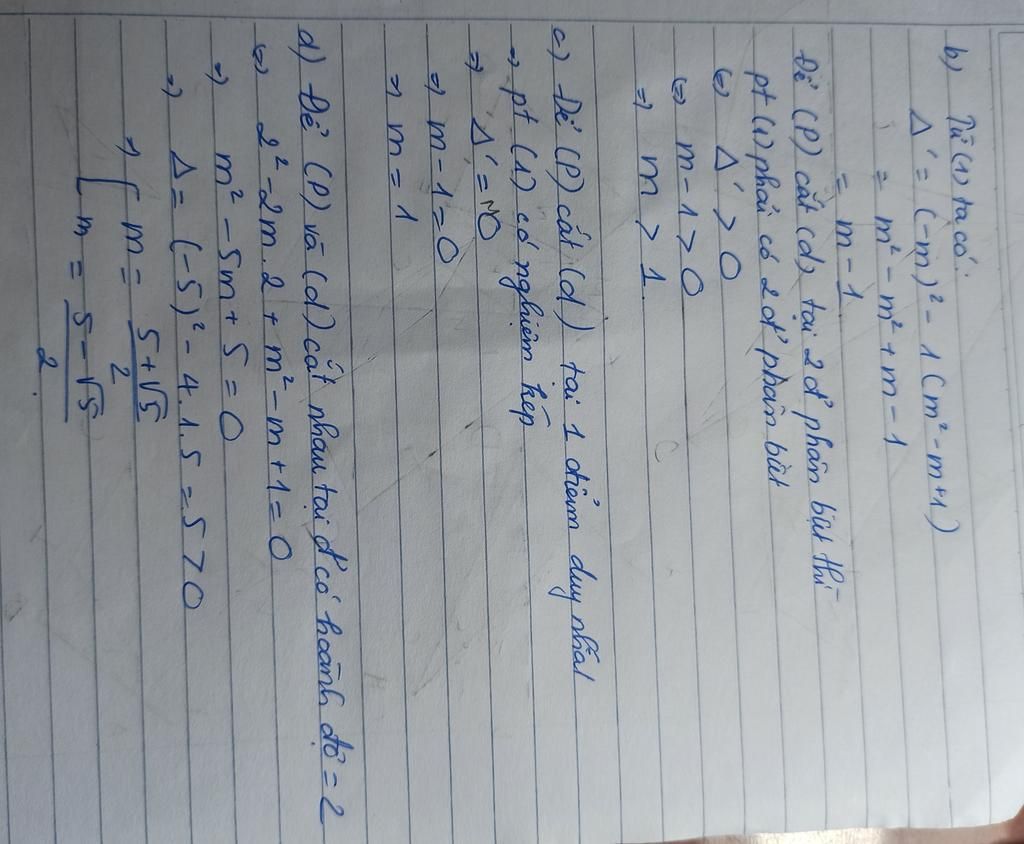 b) Từ (1) ta có:
Δ' = (-m)² - 1(m² - m + 1)
= m² - m² + m - 1
= m - 1
Để (P) cắt (d) tại 2 đ' phân biệt thì
pt (1) phải có 2 đ' phân biệt
⇔ Δ' > 0
⇔ m - 1 > 0
⇒ m > 1
c) Để (P) cắt (d) tại 1 điểm duy nhất
⇒ pt (1) có nghiệm kép
⇒ Δ' = 0
⇒ m - 1 = 0
⇒ m = 1
d) Để (P) và (d) cắt nhau tại đ' có hoành độ = 2
⇔ 2² - 2m.2 + m² - m + 1 = 0
⇒ m² - 5m + 5 = 0
⇒ Δ = (-5)² - 4.1.5 = 5 > 0
⇒ [ m = (5 + √5)/2
[ m = (5 - √5)/2